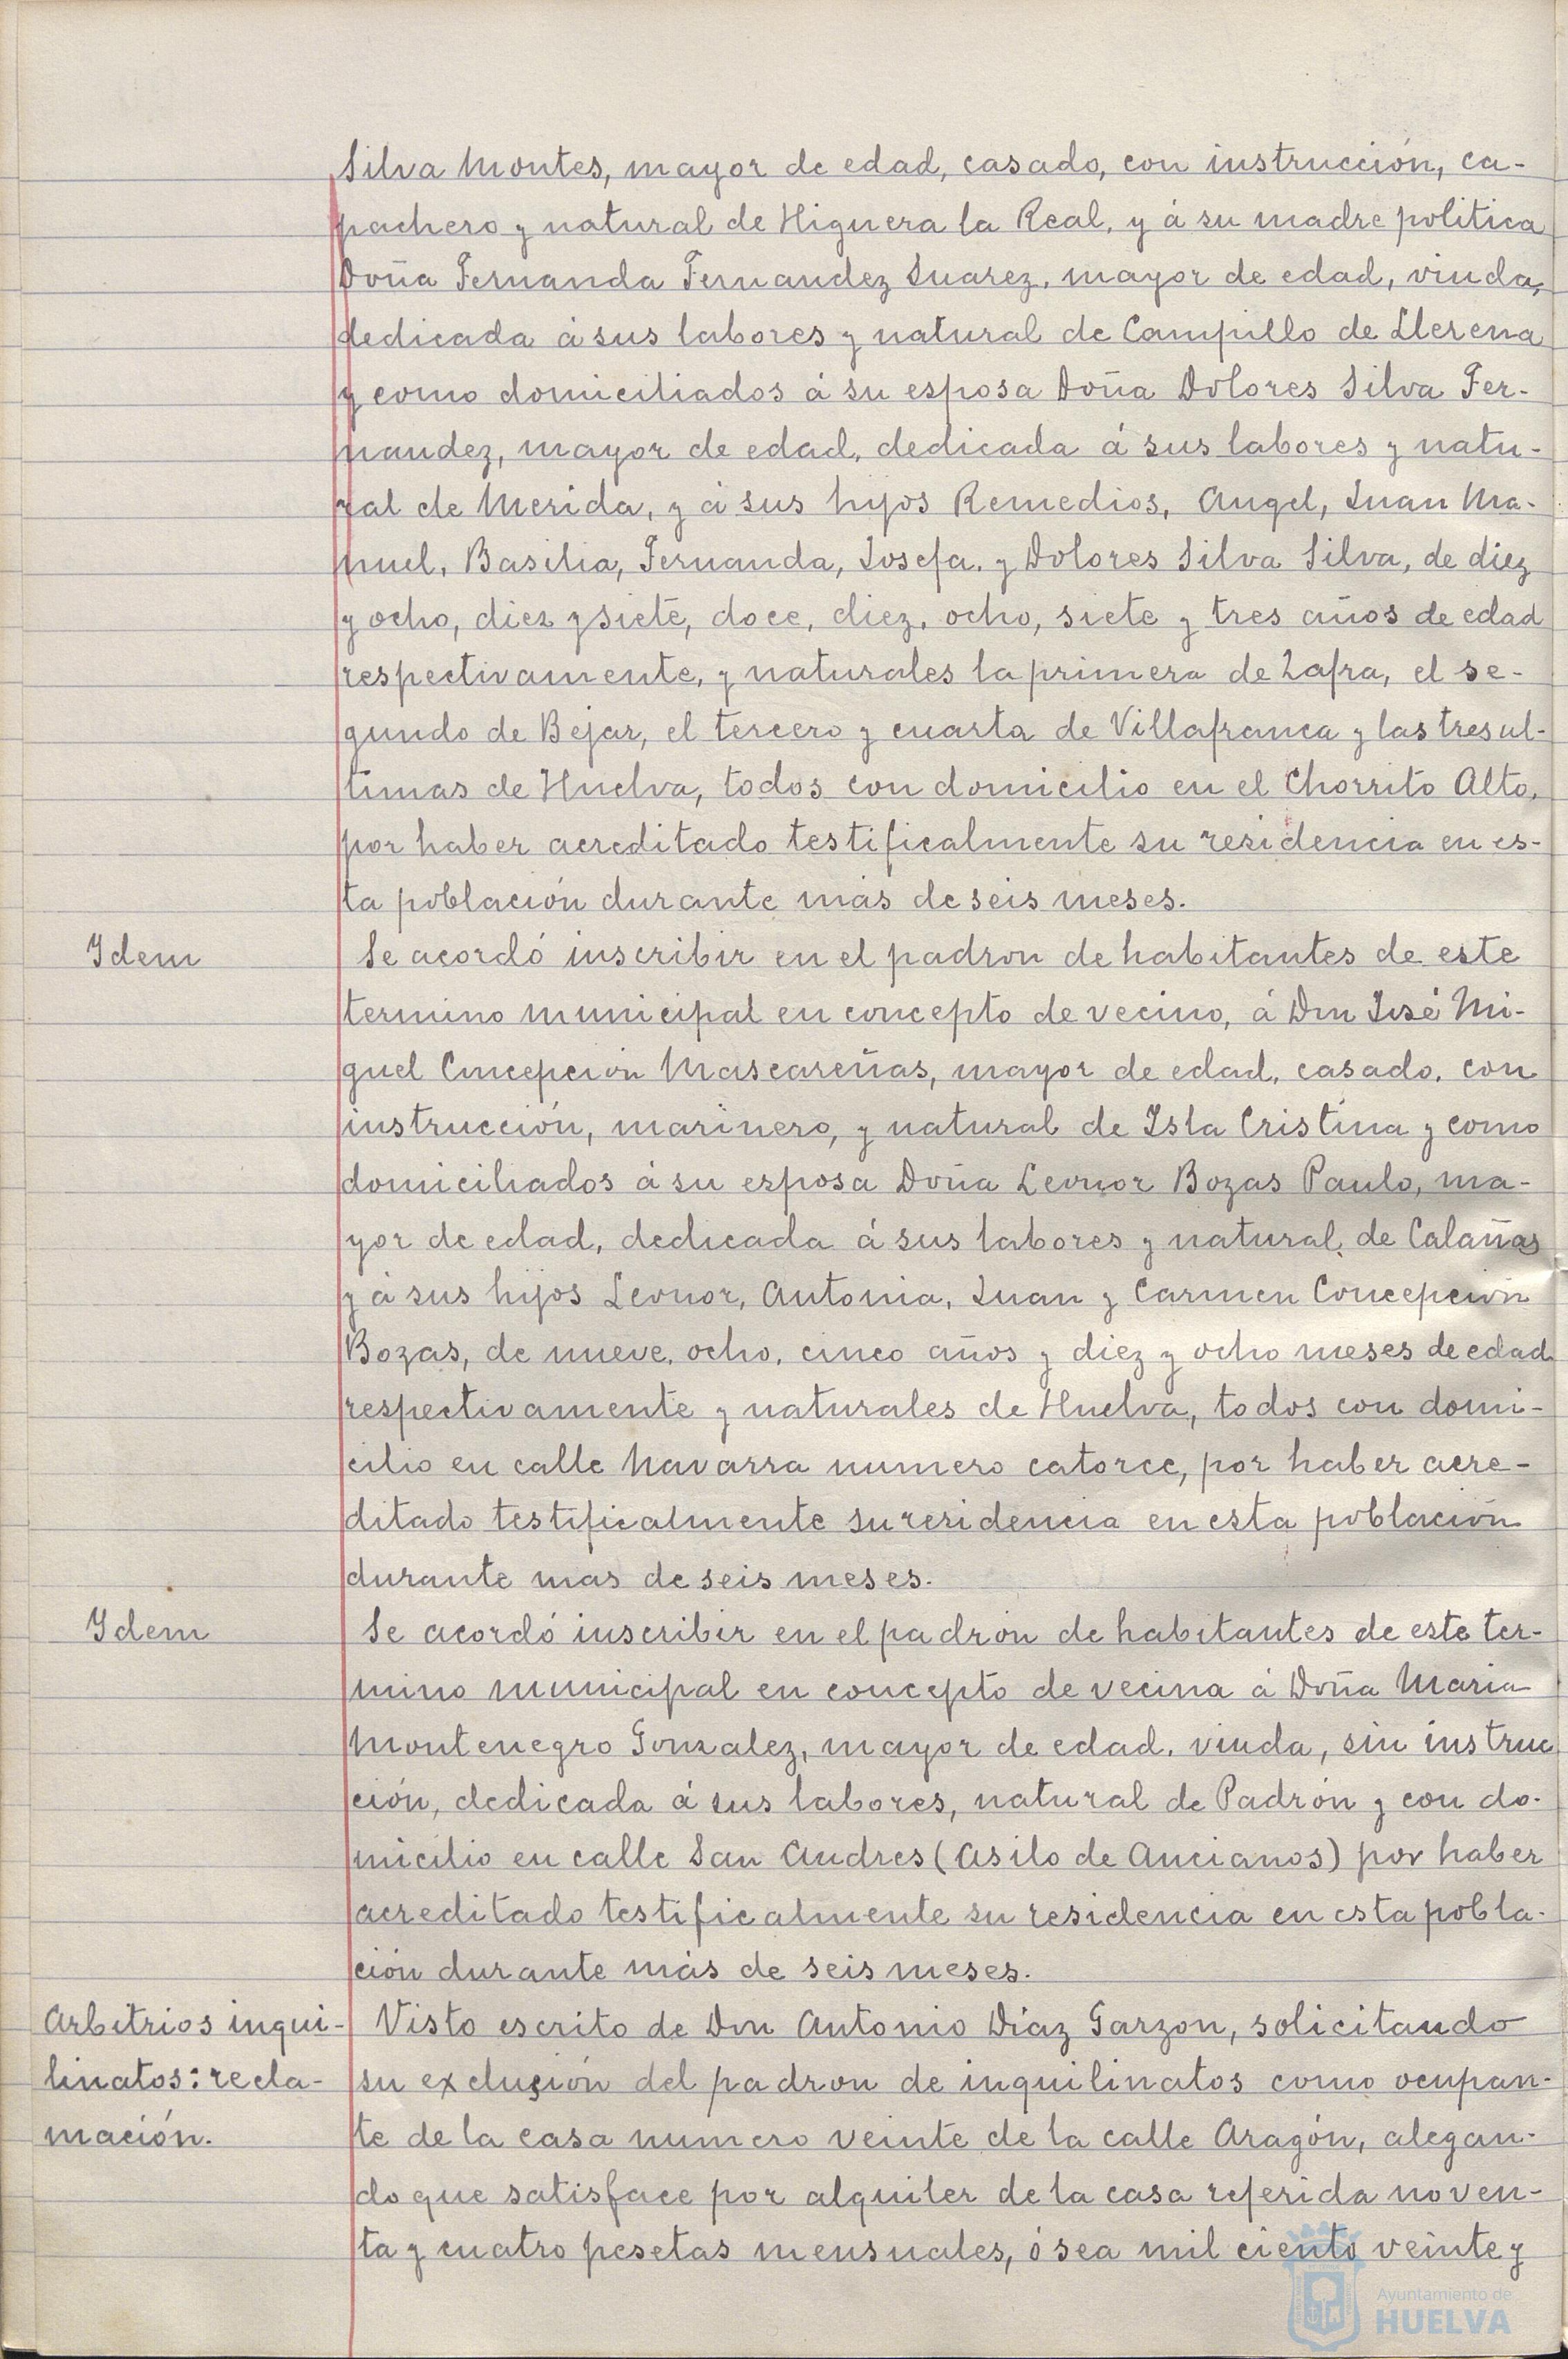 Silva Montes, mayor de edad, casado, con instrucción, ca-
pachero y natural de Higuera la Real, y á su madre politica
Doña Fernanda Fernandez Suarez, mayor de edad, viuda,
dedicada á sus labores y natural de Campillo de Llerena
y como domiciliados á su esposa Doña Dolores Silva Fer-
nandez, mayor de edad, dedicada á sus labores y natu-
ral de Merida, y á sus hijos Remedios, Angel, Juan Ma-
nuel, Basilia, Fernanda, Josefa, y Dolores Silva Silva, de diez
y ocho, diez y siete, doce, diez, ocho, siete y tres años de edad
respectivamente, y naturales la primera de Zafra, el se-
gundo de Bejar, el tercero y cuarta de Villafranca y las tres ul-
timas de Huelva, todos con domicilio en el Chorrito Alto,
por haber acreditado testificalmente su residencia en es-
ta población durante más de seis meses.
Idem
Se acordó inscribir en el padron de habitantes de este
termino municipal en concepto de vecino, á Don José Mi-
guel Concepción Mascareñas, mayor de edad, casado, con
instrucción, marinero, y natural de Isla Cristina y como
domiciliados á su esposa Doña Leonor Bozas Paulo, ma-
yor de edad, dedicada á sus labores y natural de Calañas
y á sus hijos Leonor, Antonia, Juan y Carmen Concepción
Bozas, de nueve, ocho, cinco años y diez y ocho meses de edad
respectivamente y naturales de Huelva, todos con domi-
cilio en calle Navarra numero catorce, por haber acre-
ditado testificalmente su residencia en esta población
durante mas de seis meses.
Idem
Se acordó inscribir en el padrón de habitantes de este ter-
mino municipal en concepto de vecina á Doña Maria
Montenegro Gonzalez, mayor de edad, viuda, sin instruc
ción, dedicada á sus labores, natural de Padrón y con do-
micilio en calle San Andres (Asilo de Ancianos) por haber
acreditado testificalmente su residencia en esta pobla-
ción durante más de seis meses.
Arbitrios inqui-
linatos: recla-
mación.
Visto escrito de Don Antonio Díaz Garzon, solicitando
su exclusión del padron de inquilinatos como ocupan-
te de la casa numero veinte de la calle Aragón, alegan-
do que satisface por alquiler de la casa referida noven-
ta y cuatro pesetas mensuales, ó sea mil ciento veinte y
Ayuntamiento de
HUELVA